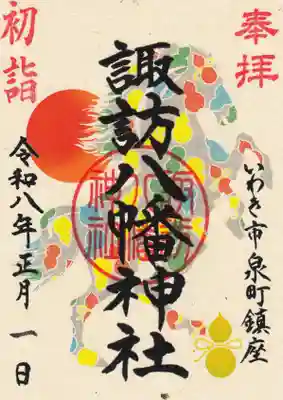 奉拝
いわき市泉町鎮座
諏訪八幡神社
初詣
令和八年正月一日